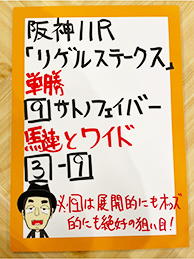 阪神11R
「リゲルステークス」
単勝
9サトノフェイバー
馬連とワイド
3-9
※9は展開的にもオッズ
的にも絶好の狙い目!